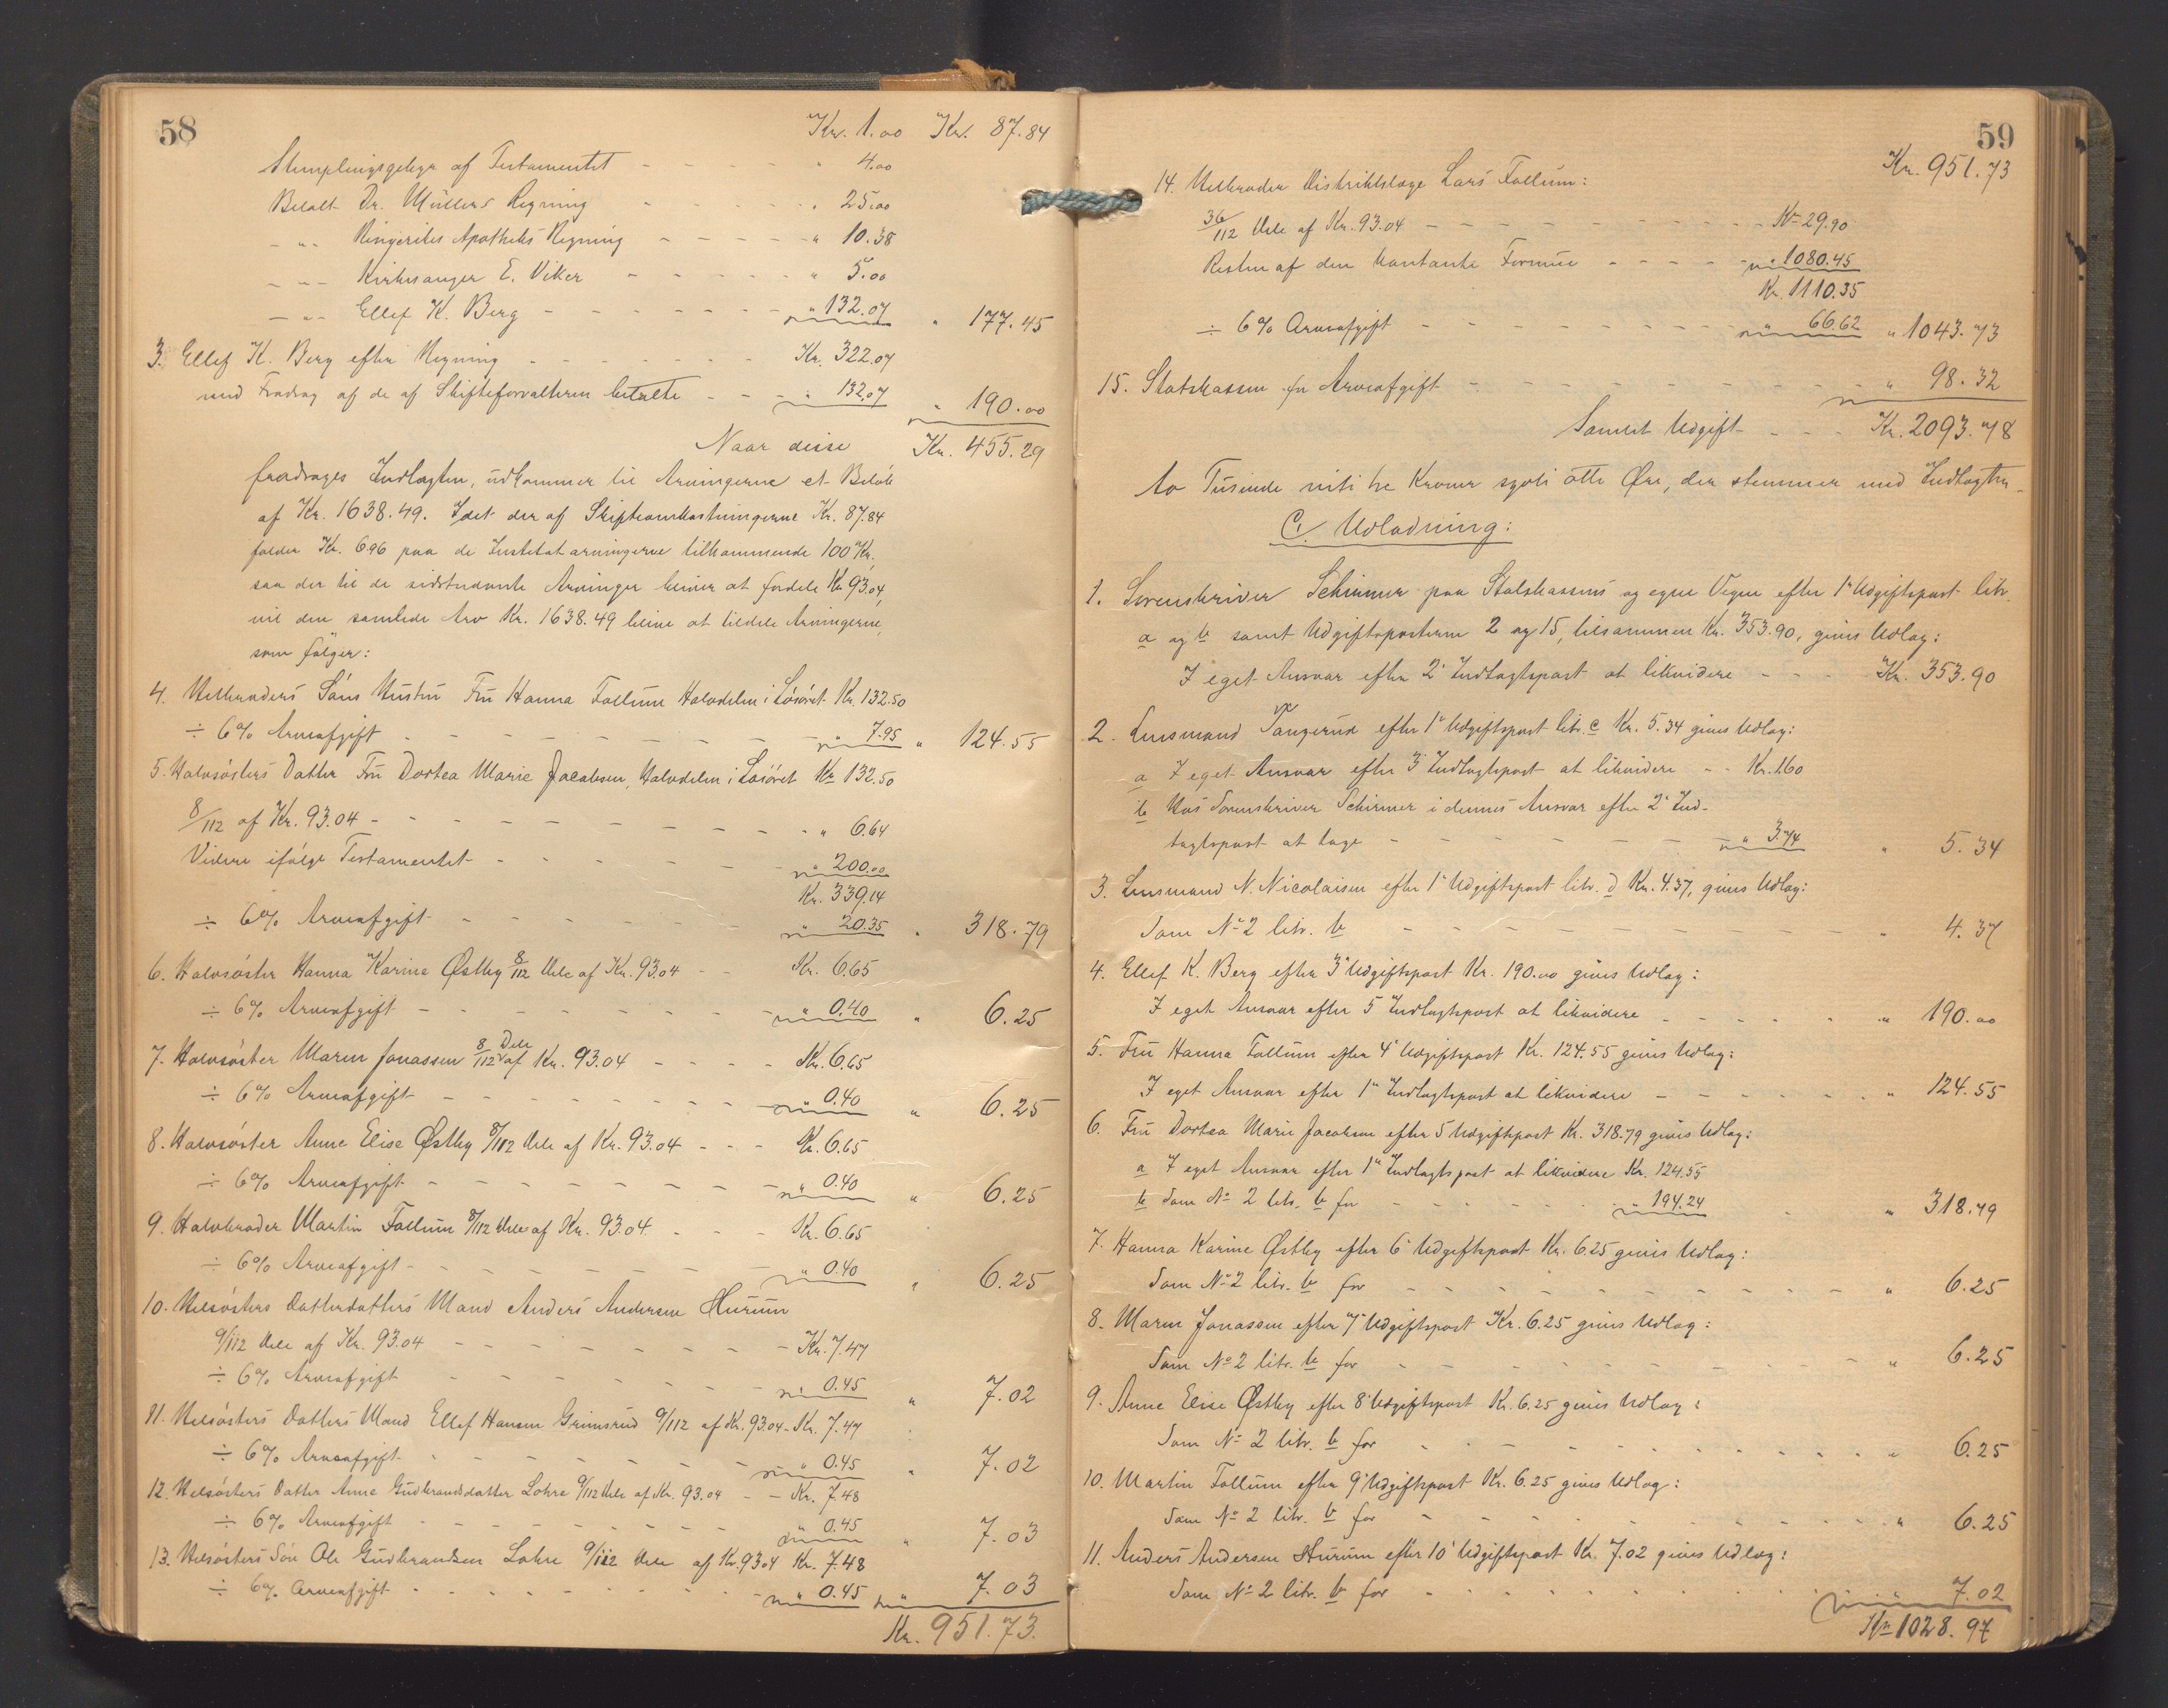 58
Kr. 1.00 Kr. 87.84
Stemplingsgebyr af Testamentet - - - - " 4.00
Betalt Dr. Müllers Regning - - - - " 25.00
- " - Ringerikes Apotheks Regning - - - - " 10.38
- " - Kirkesanger E. Viker - - - - " 5.00
- " - Ellef K. Berg - - - - " 132.07 " 177.45
3. Ellef K. Berg efter Regning - - - - Kr. 322.07
med Fradrag af de af Skifteforvalteren betalte - - " 132.07 " 190.00
Naar disse Kr. 455.29
fradrages Indtægten, udkommer til Arvingerne et Beløb
af Kr. 1638.49. Idet der af Skifteomkostningerne Kr. 87.84
falder Kr. 6.96 paa de Intestatarvingerne tilkommende 100 Kr.,
saa der til de sidstnævnte Arvinger bliver at fordele Kr 93.04,
vil den samlede Arv Kr. 1638.49 blive at tildele Arvingerne,
som følger:
4. Helbroders Søns Hustru Fru Hanna Follum Halvdelen i Løsøret Kr. 132.50
÷ 6% Arveafgift - - - - " 7.95 " 124.55
5. Halvsøsters Datter Fru Dortea Marie Jacobsen, Halvdelen i Løsøret Kr 132.50
8/112 af Kr. 93.04 - - - - " 6.64
Videre ifølge Testamentet - - - - " 200.00
Kr. 339.14
÷ 6% Arveafgift - - - - " 20.35 " 318.79
6. Halvsøster Hanna Karine Østby 8/112 Dele af Kr. 93.04 - - Kr. 6.65
÷ 6% Arveafgift - - - - " 0.40 " 6.25
7. Halvsøster Maren Jonassen 8/112 Dele af Kr. 93.04 - - - - Kr. 6.65
÷ 6% Arveafgift - - - - " 0.40 " 6.25
8. Halvsøster Anne Elise Østby 8/112 Dele af Kr. 93.04 - - - Kr. 6.65
÷ 6% Arveafgift - - - - " 0.40 " 6.25
9. Halvbroder Martin Follum 8/112 Dele af Kr. 93.04 - - - Kr. 6.65
÷ 6% Arveafgift - - - - " 0.40 " 6.25
10. Helsøsters Datterdatters Mand Anders Andersen Hurum
9/112 Dele af Kr. 93.04 - - - - Kr. 7.47
÷ 6% Arveafgift - - - - " 0.45 " 7.02
11. Helsøsters Datters Mand Ellef Hansen Grimsrud 9/112 af Kr. 93.04 - Kr. 7.47
÷ 6% Arveafgift - - - - " 0.45 " 7.02
12. Helsøsters Datter Anne Gudbrandsdatter Lohre 9/112 Dele af Kr. 93.04 - - Kr. 7.48
÷ 6% Arveafgift - - - - " 0.45 " 7.03
13. Helsøsters Søn Ole Gudbrandsen Lohre 9/112 Dele af Kr. 93.04 Kr. 7.48
÷ 6% Arveafgift - - - - " 0.45 " 7.03
Kr. 951.73.
59
Kr. 951.73
14. Helbroder Distriktslæge Lars Follum:
36/112 Dele af Kr. 93.04 - - - - Kr 29.90
Resten af den kontante Formue - - - - " 1080.45
Kr. 1110.35
÷ 6% Arveafgift - - - - " 66.62 " 1043.73
15. Statskassen for Arveafgift - - - - " 98.32
Samlet Udgift - - - Kr. 2093.78
to Tusinde niti tre Kroner sytti otte Øre, der stemmer med Indtægten.
C. Udlodning:
1. Sorenskriver Schirmer paa Statskassens og egne Vegne efter 1ste Udgiftspost litr.
a og b samt Udgiftsposterne 2 og 15, tilsammen Kr. 353.90, gives Udlæg:
I eget Ansvar efter 2' Indtægtspost at likvidere - - - Kr. 353.90
2. Lensmand Tangerud efter 1' Udgiftspost litr. c Kr. 5.34 gives Udlæg:
a I eget Ansvar efter 3' Indtægtspost at likvidere - - Kr. 1.60
b Hos Sorenskriver Schirmer i dennes Ansvar efter 2' Ind-
tægtspost at tage - - - - " 3.74 " 5.34
3. Lensmand N. Nicolaisen efter 1' Udgiftspost litr. d Kr. 4.37, gives Udlæg:
Som No 2 litr. b - - - - " 4.37
4. Ellef K. Berg efter 3' Udgiftspost Kr. 190.00 gives Udlæg:
I eget Ansvar efter 5 Indtægtspost at likvidere - - - - " 190.00
5. Fru Hanna Follum efter 4' Udgiftspost Kr. 124.55 gives Udlæg:
I eget Ansvar efter 1ste Indtægtspost at likvidere - - - - " 124.55
6. Fru Dortea Marie Jacobsen efter 5 Udgiftspost Kr. 318.79 gives Udlæg:
a I eget Ansvar efter 1ste Indtægtspost at likvidere Kr. 124.55
b Som No 2 litr. b for - - - - " 194.24 " 318.79
7. Hanna Karine Østby efter 6' Udgiftspost Kr. 6.25 gives Udlæg:
Som No 2 litr. b for - - - - " 6.25
8. Maren Jonassen efter 7' Udgiftspost Kr. 6.25 gives Udlæg:
Som No 2 litr. b for - - - - " 6.25
9. Anne Elise Østby efter 8' Udgiftspost Kr. 6.25 gives Udlæg:
Som No 2 litr. b for - - - - " 6.25
10. Martin Follum efter 9' Udgiftspost Kr. 6.25 gives Udlæg:
Som No 2 litr. b for - - - - " 6.25
11. Anders Andersen Hurum efter 10' Udgiftspost Kr. 7.02 gives Udlæg:
Som No 2 litr. b for - - - - " 7.02
Kr 1028.97